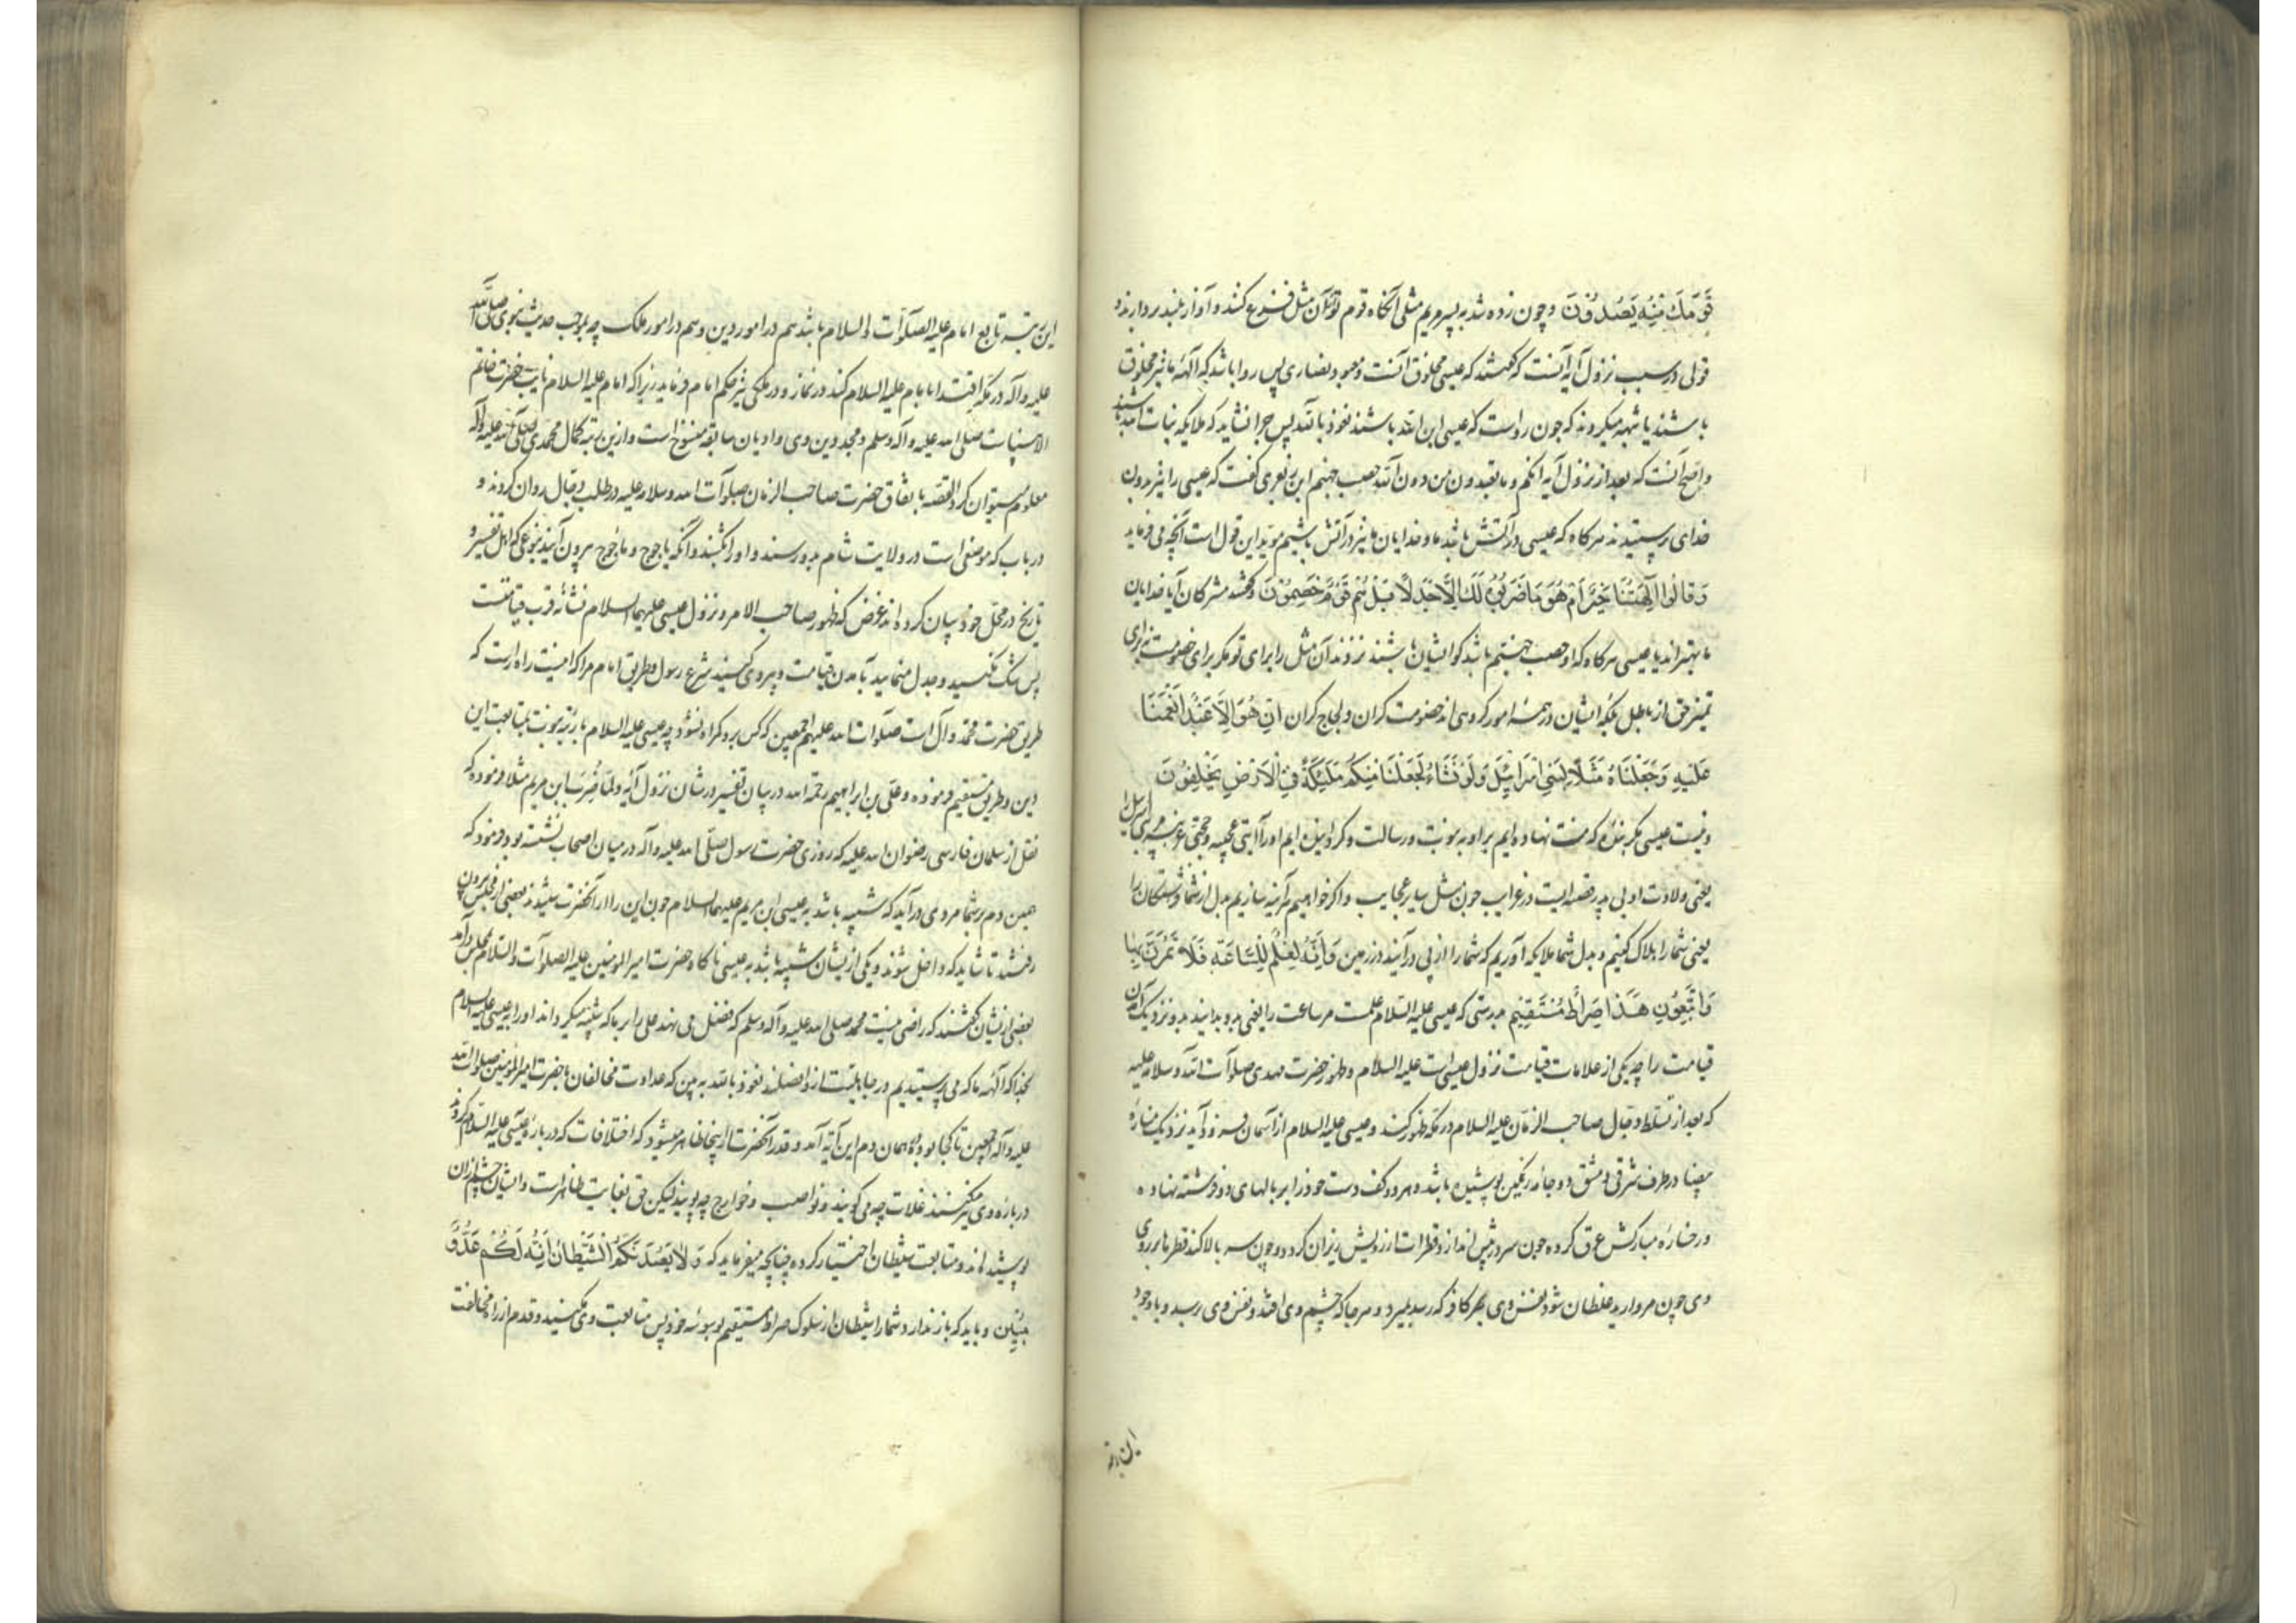 قَوْمُكَ مِنْهُ يَصُدُّونَ و چون زده شد به پسر مریم مثلی آنگاه قوم تو از آن مثل فزع کنند و آواز بلند بردارند و
قولی در سبب نزول آیه آنست که گفتند که عیسی مخلوق است و معبود نصاری پس روا باشد که آلهٔ ما نیز مخلوق
باشند یا شبهه میکردند که چون رواست که عیسی ابن الله باشد نعوذ بالله پس چرا نشاید که ملایکه بنات الله باشند
و اصح آنست که بعد از نزول آیه انکم و ما تعبدون من دون الله حصب جهنم ابن زبعری گفت که عیسی را نیز بدون
خدای پرستیدند هرگاه که عیسی در آتش باشد ما و خدایان ما نیز در آتش باشیم موید این قول است آنچه می فرماید
وَقَالُوا آلِهَتُنَا خَيْرٌ أَمْ هُوَ مَا ضَرَبُوهُ لَكَ إِلَّا جَدَلًا بَلْ هُمْ قَوْمٌ خَصِمُونَ و گفتند مشرکان آیا خدایان
ما بهترند یا عیسی هرگاه که او حصب جهنم باشد گو ایشان باشند نزدند آن مثل را برای تو مگر برای خصومت نه برای
تمیز حق از باطل بلکه ایشان در همهٔ امور گروهی اند خصومت کران و لجاج کران اِنْ هُوَ اِلَّا عَبْدٌ اَنْعَمْنَا
عَلَيْهِ وَجَعَلْنَاهُ مَثَلًا لِبَنِي اِسْرَائِيلَ وَلَوْ نَشَاءُ لَجَعَلْنَا مِنْكُمْ مَلٰئِكَةً فِي الْاَرْضِ يَخْلُفُونَ
و نیست عیسی مگر بندهٔ که منت نهاده ایم بر او به نبوت و رسالت و گردانیده ایم او را آیتی عجیبه و حجتی غریبه برای بنی اسرائیل
یعنی ولادت او بی پدر قصه ایست در غرایب چون مثل سایر عجایب و اگر خواهیم هرآینه سازیم بدل از شما فرشتگان را
یعنی شما را هلاک کنیم و بدل شما ملایکه آوریم که شما را از پی درآیند در زمین وَاِنَّهُ لَعِلْمٌ لِلسَّاعَةِ فَلَا تَمْتَرُنَّ بِهَا
وَاتَّبِعُونِ هٰذَا صِرَاطٌ مُسْتَقِيمٌ بدرستی که عیسی علیه السلام علمست مر ساعت را یعنی بدو بدانند نزدیک آمدن
قیامت را چه یکی از علامات قیامت نزول عیسی است علیه السلام و ظهور حضرت مهدی صلوات الله و سلامه علیه
که بعد از تسلط دجال صاحب الزمان علیه السلام در مکه ظهور کند و عیسی علیه السلام از آسمان فرود آید نزدیک منارهٔ
بیضا در طرف شرقی دمشق دو جامهٔ رنگین پوشیده باشد و هر دو کف دست خود را بر بالهای دو فرشته نهاده
و رخسارهٔ مبارکش عرق کرده چون سر در پیش اندازد قطرات از رویش ریزان گردد و چون سر بالا کند قطرها بر روی
وی چون مروارید غلطان شود نفس وی بهر کافر که رسد بمیرد و هر جا که چشم وی افتد نفس وی رسد و باوجود
این رتبه
این رتبه تابع امام علیه الصلوات و السلام باشد هم در امور دین و هم در امور ملک چه بموجب حدیث نبوی صلی الله
علیه و آله در مکه اقتدا بامام علیه السلام کند در نماز و در ملکی نیز حکم امام فرماید زیرا که امام علیه السلام نایب حضرت خاتم
الانبیاست صلی الله علیه و آله وسلم و مجدد دین وی و ادیان سابقه منسوخ است و ازین رتبه کمال محمدی صلی الله علیه و آله
معلوم میتوان کرد القصه باتفاق حضرت صاحب الزمان صلوات الله و سلامه علیه در طلب دجال روان کردند و
در باب که موضعی است در ولایت شام بدو رسند و او را بکشند و آنگه یاجوج و ماجوج بیرون آیند بنوعی که اهل تفسیر و
تاریخ در محل خود بیان کرده اند غرض که ظهور صاحب الامر و نزول عیسی علیهما السلام نشانهٔ قرب قیامتست
پس شک مکنید و جدل منمایید بآمدن قیامت و پیروی کنید شرع رسول و طریق امام مرا که اینست راه راست که
طریق حضرت محمد و آل است صلوات الله علیهم اجمعین که کس برو گمراه نشود چه عیسی علیه السلام با رتبهٔ نبوت بمتابعت این
دین و طریق مستقیم فرموده و علی بن ابراهیم رحمة الله در بیان تفسیر در شان نزول آیه و لما ضرب ابن مریم مثلا فرموده که
نقل از سلمان فارسی رضوان الله علیه که روزی حضرت رسول صلی الله علیه و آله در میان اصحاب نشسته بود فرمود که
همین دم بر شما مردی درآید که شبیه باشد به عیسی ابن مریم علیهما السلام چون این را از آنحضرت شنیدند بعضی از مجلس بیرون
رفتند تا شاید که داخل شوند و یکی ازیشان شبیه باشد به عیسی ناگاه حضرت امیر المومنین علیه الصلوات و السلام بمجلس درآمد
بعضی ازیشان گفتند که راضی نیست محمد صلی الله علیه و آله وسلم که فضل می نهد علی را بر ما که شبیه میگرداند او را به عیسی علیه السلام
بخدا که آلهٔ ما که می پرستیدیم در جاهلیت ازو افضلند نعوذ بالله به بین که عداوت مخالفان با حضرت امیر المومنین صلوات الله
علیه و آله اجمعین تا کجا بوده همان دم این آیه آمد و قدر آنحضرت از اینجا ظاهر میشود که اختلافات که در بارهٔ عیسی علیه السلام کردند
در بارهٔ وی نیز کردند غلات چه می گویند و نواصب و خوارج چه گویند لیکن حق بغایت ظاهر است و ایشان چشم ازان
پوشیده اند و متابعت شیطان اختیار کرده چنانچه میفرماید که وَلَا يَصُدَّنَّكُمُ الشَّيْطَانُ اِنَّهُ لَكُمْ عَدُوٌّ
مُبِينٌ و باید که باز ندارد شما را شیطان از سلوک صراط مستقیم بوسوسهٔ خود پس متابعت وی مکنید و قدم از راه مخالفت